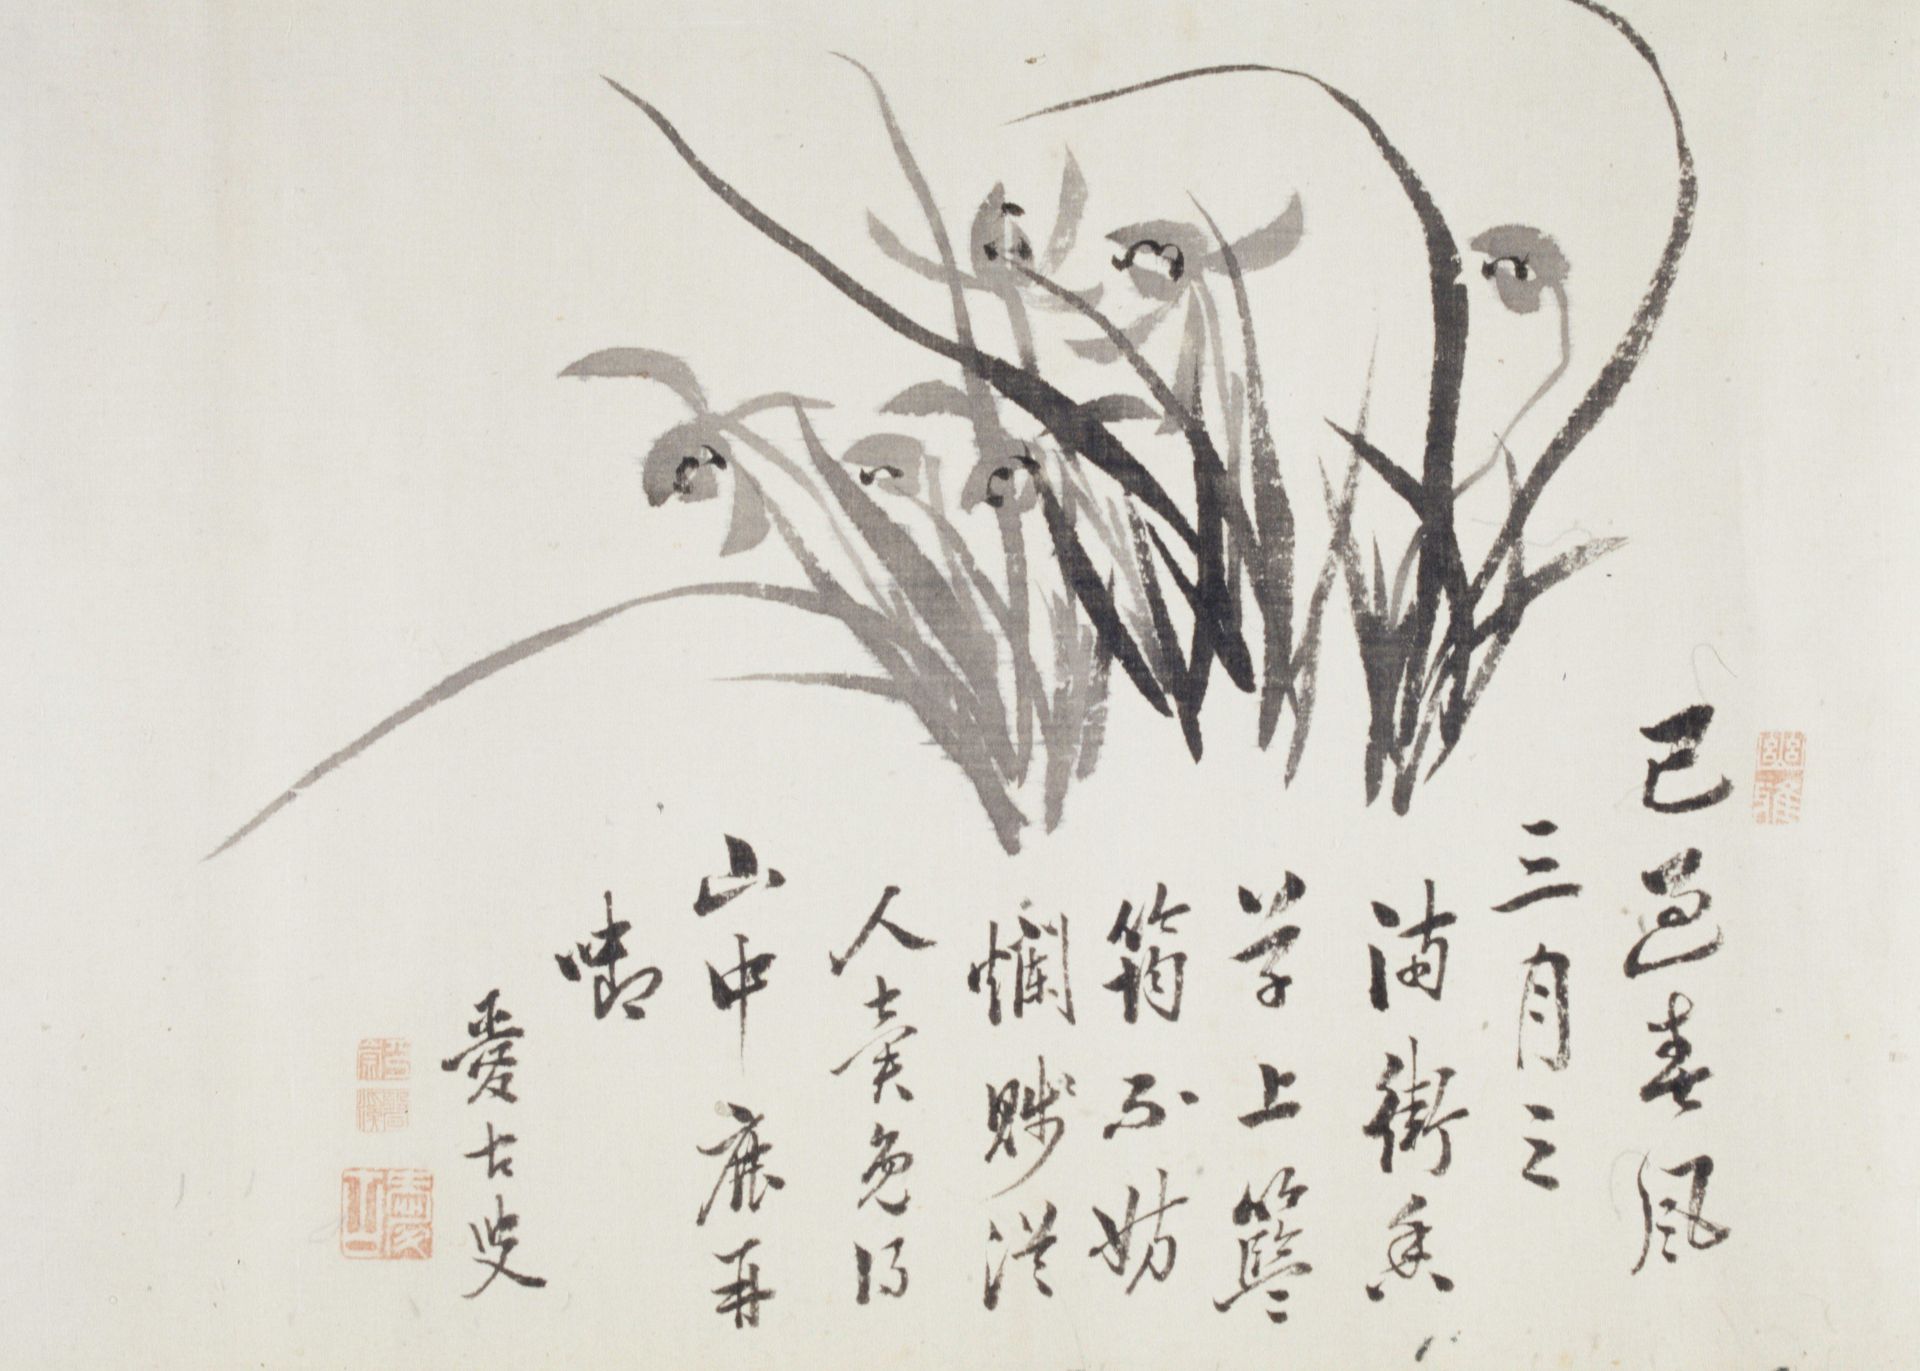 已過春風
三月三
滿街香
草上籃
筠不妨
爛賤從
人賣免得
山中鹿再
啣
愛古叟